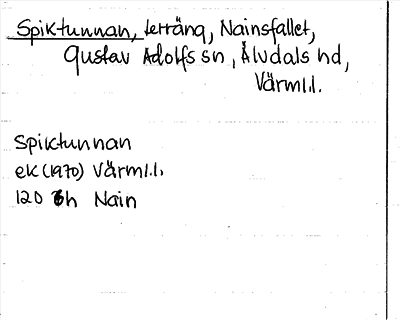 Spiktunnan, terräng, Nainsfallet,
Gustav Adolfs sn, Älvdals hd,
Värml.l.
Spiktunnan
ek (1970) Värml.l.
120 6h Nain